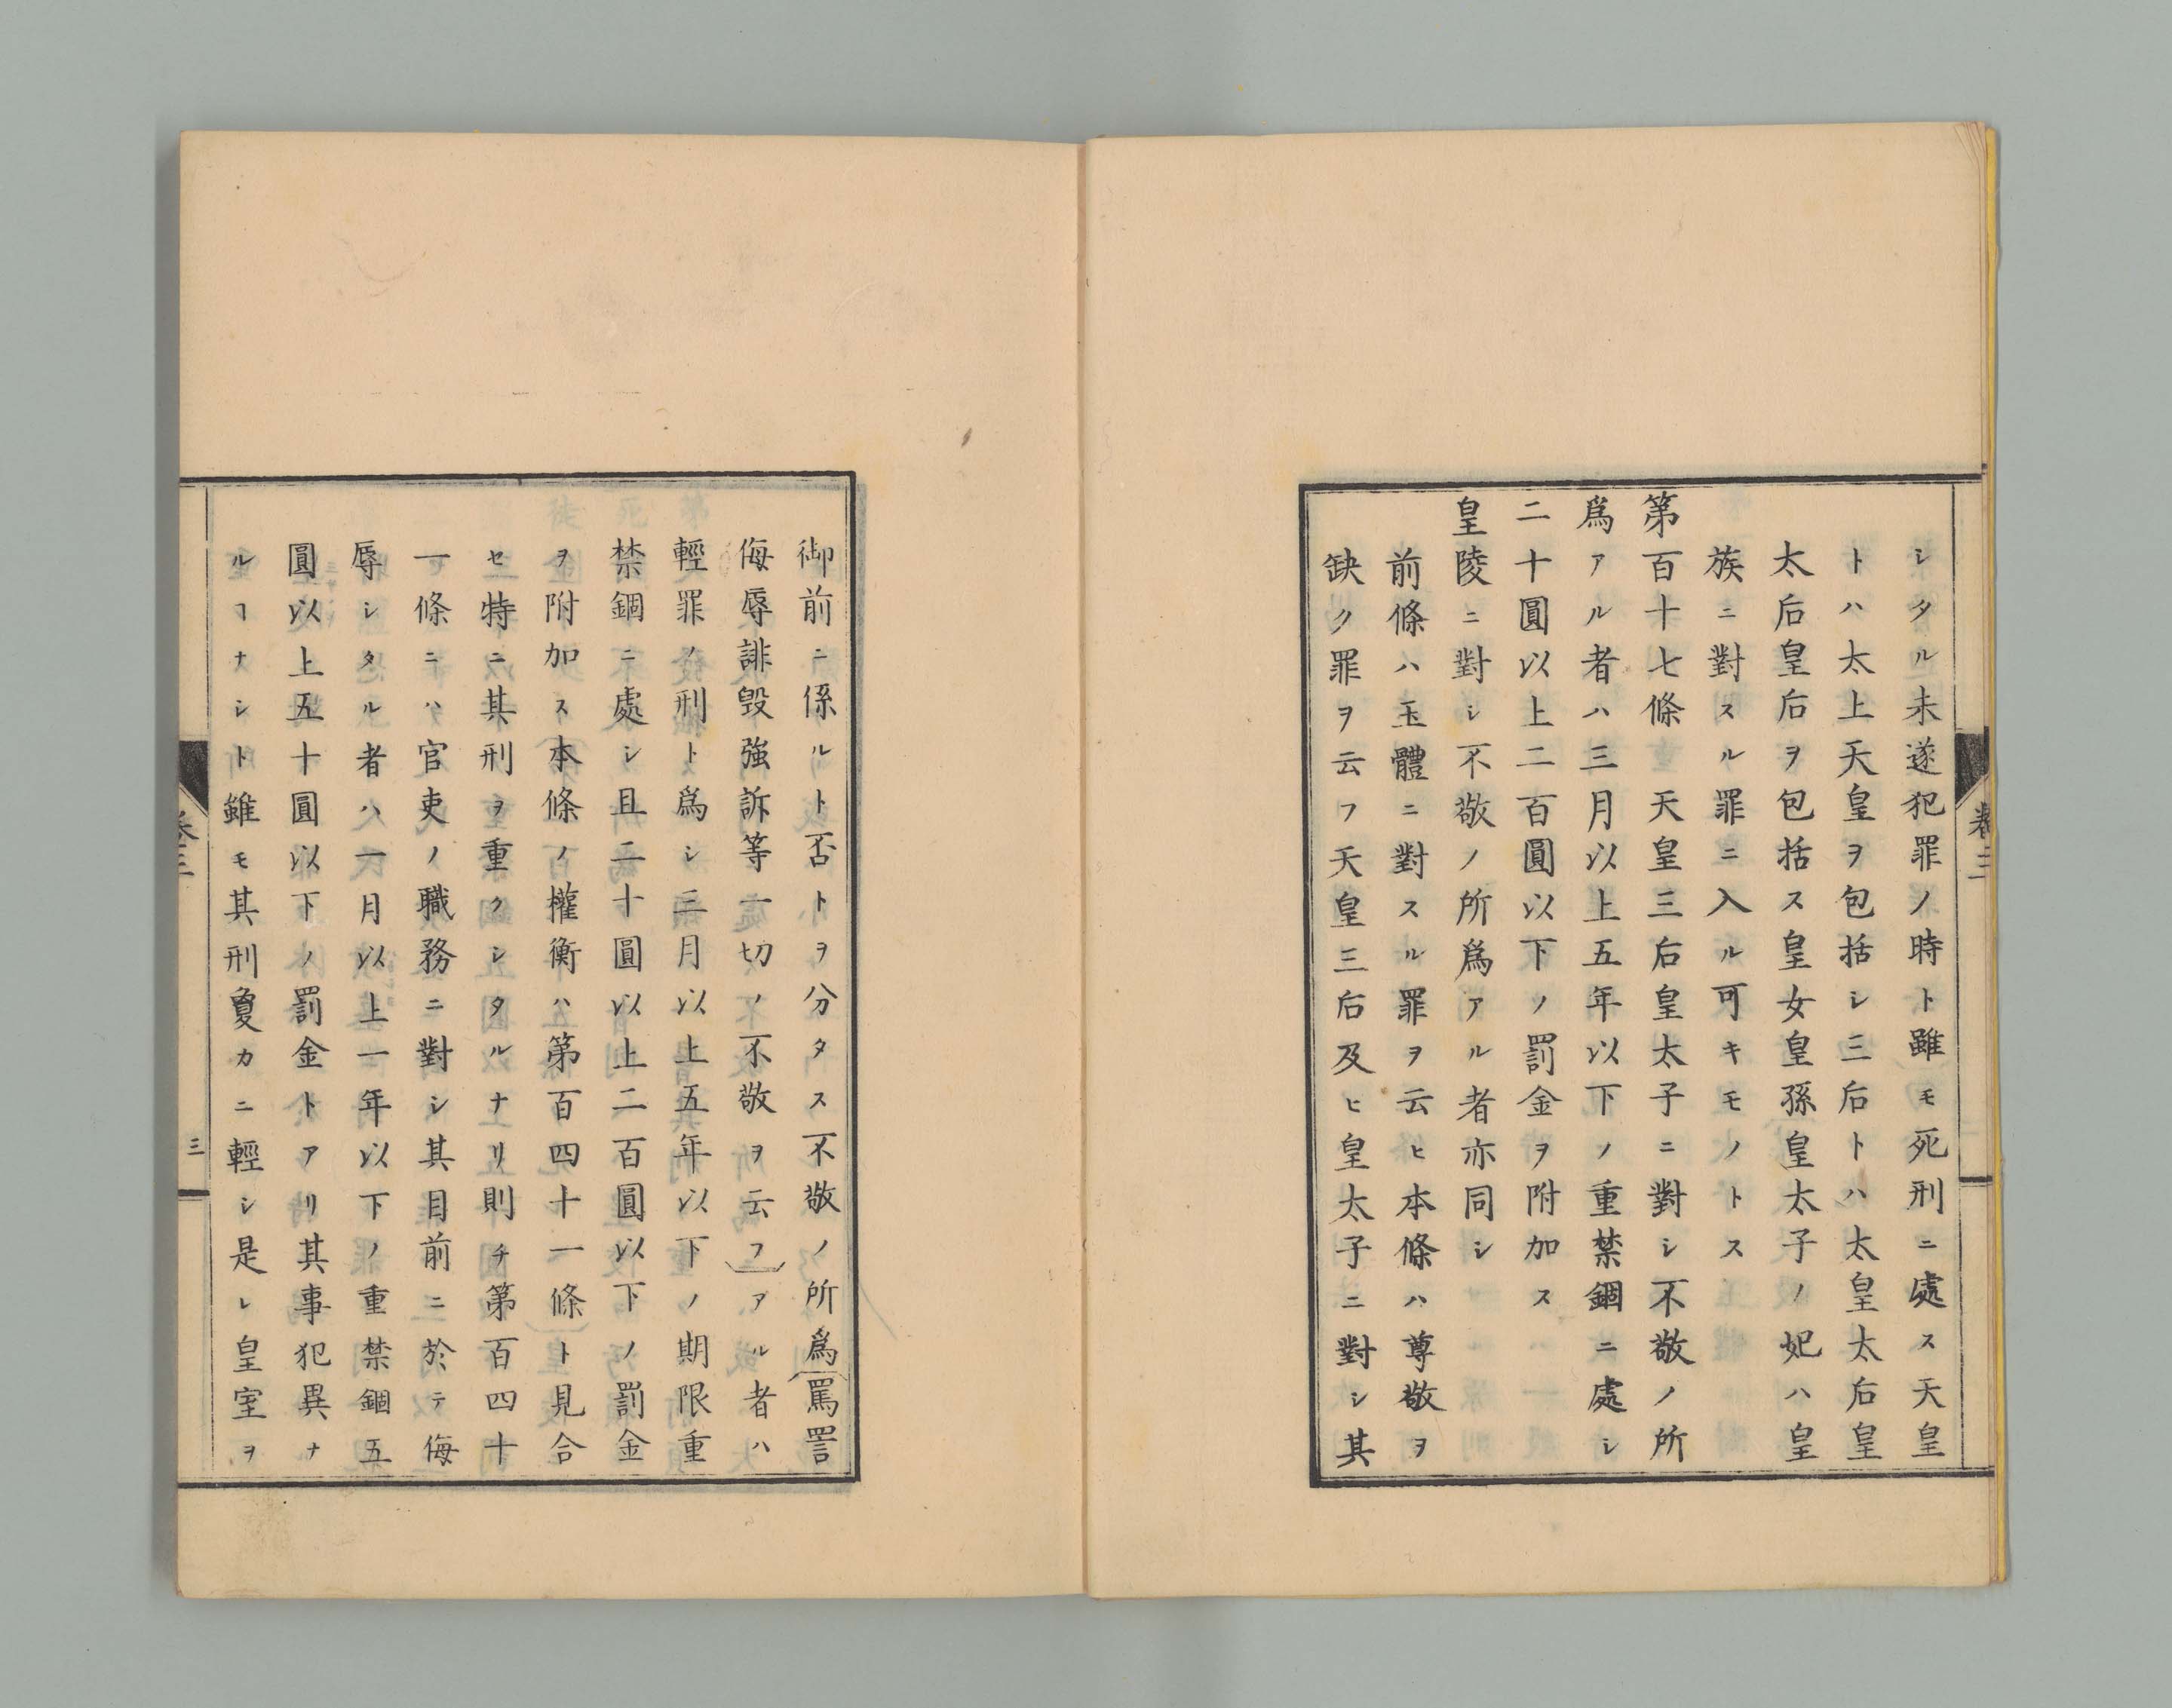 シタル未遂犯罪ノ時ト雖モ死刑ニ處ス天皇
トハ太上天皇ヲ包括シ三后トハ太皇太后皇
太后皇后ヲ包括ス皇女皇孫皇太子ノ妃ハ皇
族ニ對スル罪ニ入ル可キモノトス
第百十七條天皇三后皇太子ニ對シ不敬ノ所
爲アル者ハ三月以上五年以下ノ重禁錮ニ處シ
二十圓以上二百圓以下ノ罰金ヲ附加ス
皇陵ニ對シ不敬ノ所爲アル者亦同シ
前條ハ玉體ニ對スル罪ヲ云ヒ本條ハ尊敬ヲ
缺ク罪ヲ云フ天皇三后及ヒ皇太子ニ對シ其
御前ニ係ルト否トヲ分タス不敬ノ所爲(罵詈
侮辱誹毀強訴等一切ノ不敬ヲ云フ)アル者ハ
輕罪ノ刑ト爲シ三月以上五年以下ノ期限重
禁錮ニ處シ且二十圓以上二百圓以下ノ罰金
ヲ附加ス本條ノ權衡ハ第百四十一條ト見合
セ特ニ其刑ヲ重クシタルナリ則チ第百四十
一條ニハ官吏ノ職務ニ對シ其目前ニ於テ侮
辱シタル者ハ一月以上一年以下ノ重禁錮五
圓以上五十圓以下ノ罰金トアリ其事犯異ナ
ルヿナシト雖モ其刑敻カニ輕シ是レ皇室ヲ
卷三
三